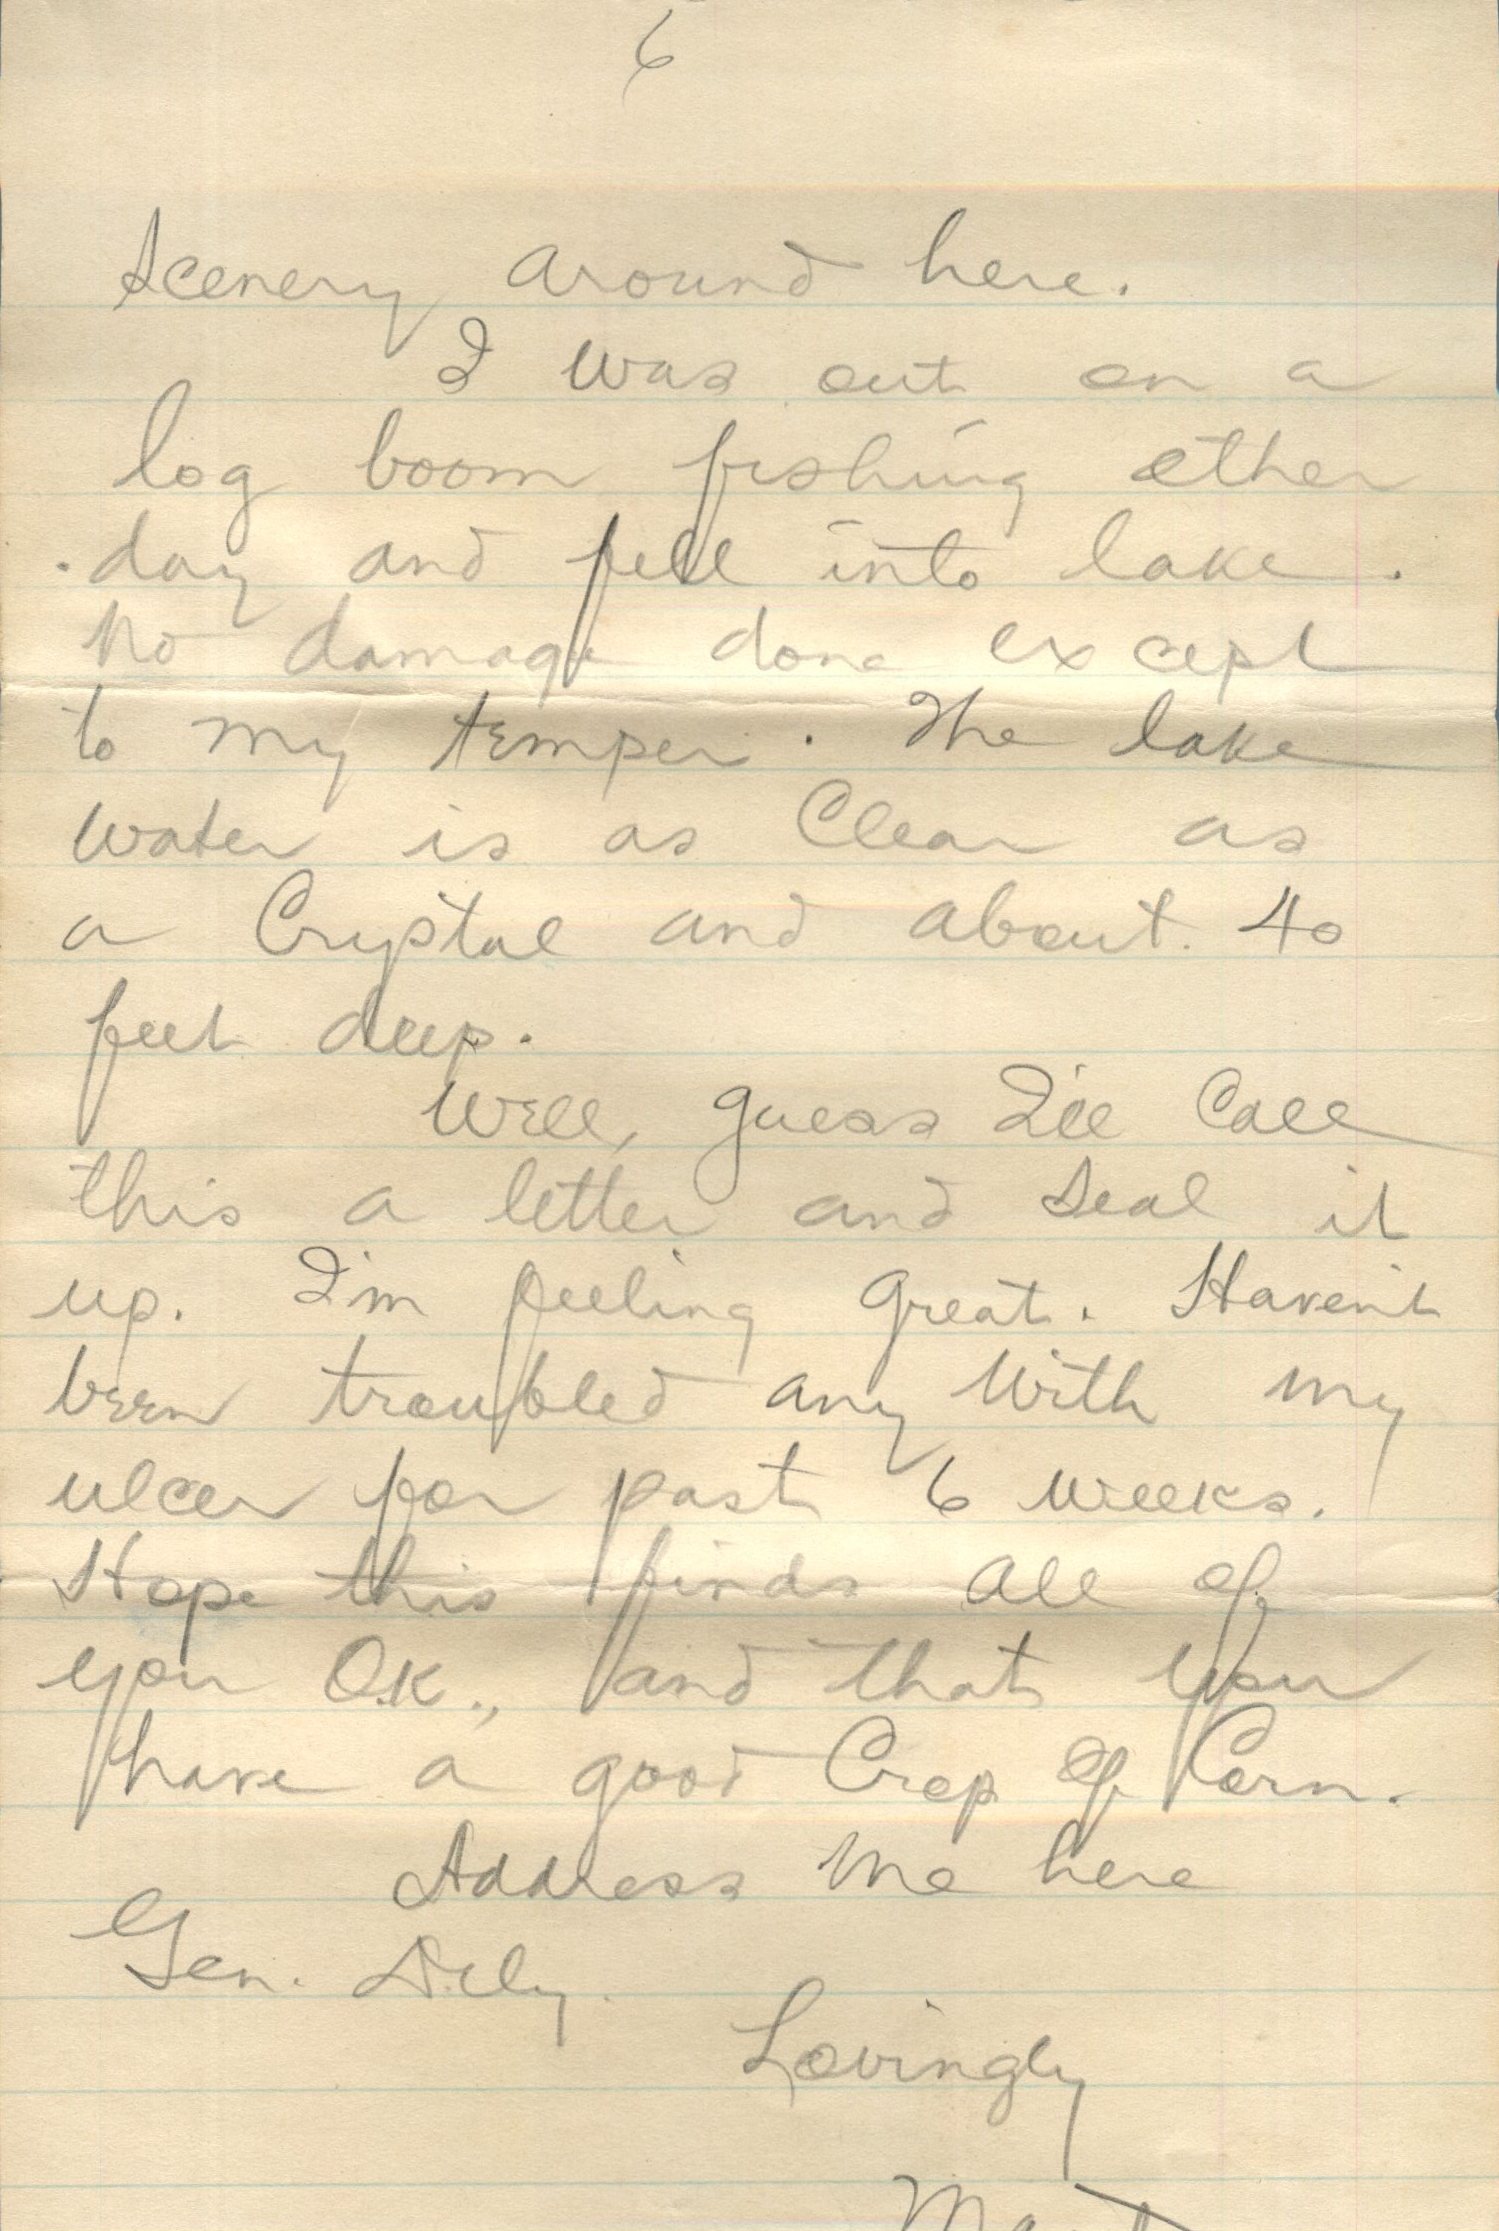 6
Scenery around here.
I was out on a
log boom fishing other
day and fell into lake.
No damage done except
to my temper. The lake
water is as Clear as
a Crystal and about 40
feet deep.
Well, guess I'll Call
this a letter and seal it
up. I'm feeling great. Haven't
been troubled any with my
ulcer for past 6 weeks.
Hope this finds all of
you O.K., and that you
have a good Crop of Corn.
Address me here
Gen. Dely.
Lovingly